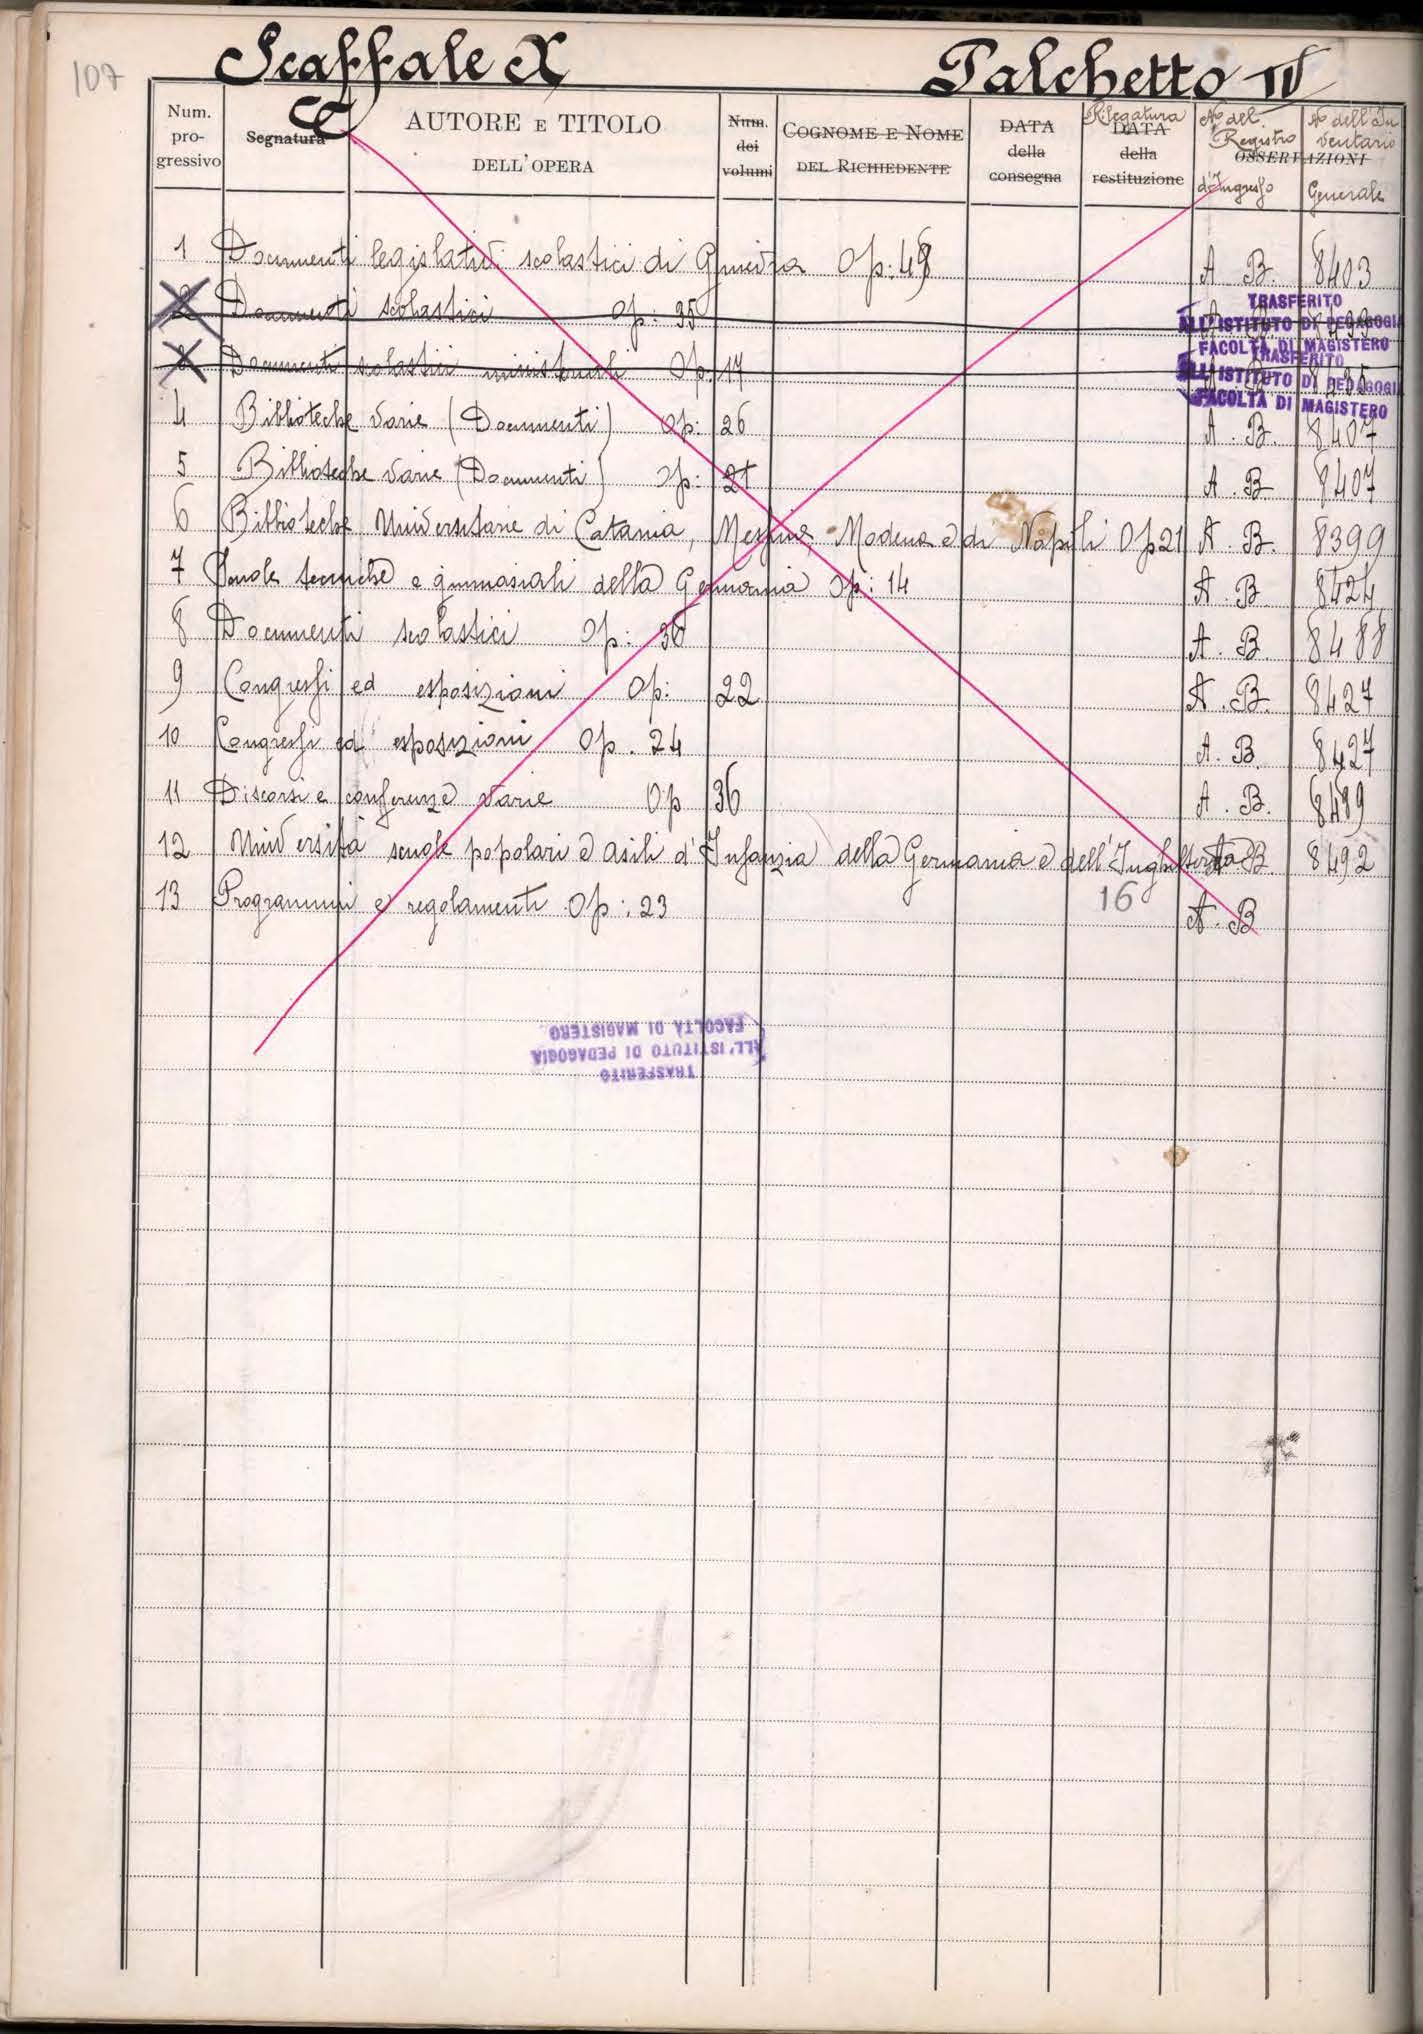 107
Scaffale X
Palchetto IV
C
Num. progressivo
Segnatura
AUTORE E TITOLO DELL'OPERA
Num. dei volumi
COGNOME E NOME DEL RICHIEDENTE
DATA della consegna
Rilegatura
DATA della restituzione
No del Registro d'Ingresso
OSSERVAZIONI
No dell'Inventario Generale
1 Documenti legislativi scolastici di Ginevra Op: 49 A. B. 8403
2 Documenti scolastici Op: 35
TRASFERITO
ALL'ISTITUTO DI PEDAGOGIA
FACOLTÀ DI MAGISTERO
3 Documenti scolastici ministeriali Op: 17
TRASFERITO
ALL'ISTITUTO DI PEDAGOGIA
FACOLTÀ DI MAGISTERO
4 Biblioteche varie (Documenti) Op: 26 A. B. 8407
5 Biblioteche varie (Documenti) Op: 21 A. B. 8407
6 Biblioteche Universitarie di Catania, Messina, Modena e di Napoli Op 21 A. B. 8399
7 Scuole tecniche e ginnasiali della Germania Op: 14 A. B. 8424
8 Documenti scolastici Op: 36 A. B. 8488
9 Congressi ed esposizioni Op: 22 A. B. 8427
10 Congressi ed esposizioni Op. 24 A. B. 8427
11 Discorsi e conferenze varie Op 36 A. B. 8489
12 Università scuole popolari e asili d'Infanzia della Germania e dell'Inghilterra A B. 8492
16
13 Programmi e regolamenti Op: 23 A. B
TRASFERITO
ALL'ISTITUTO DI PEDAGOGIA
FACOLTÀ DI MAGISTERO